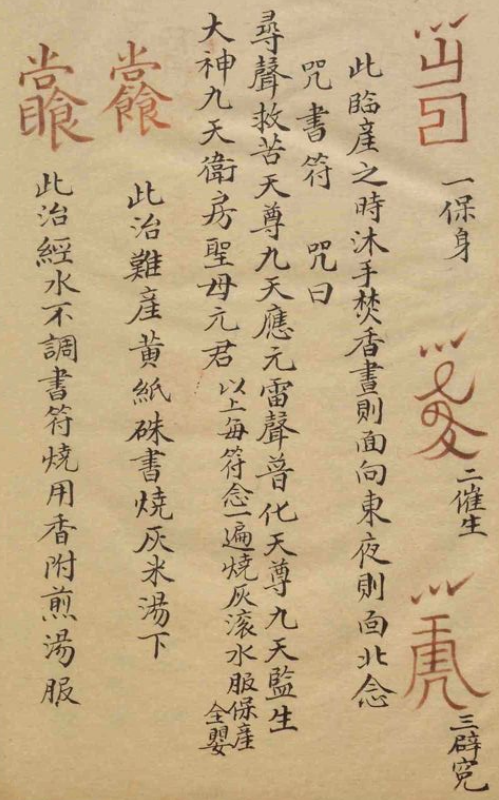 一保身
二催生
三辟冤
此臨產之時沐手焚香晝則面向東夜則面北念
咒書符 咒曰
尋聲救苦天尊九天應元雷聲普化天尊九天監生
大神九天衛房聖母元君 以上每符念一遍燒灰滾水服保產全嬰
此治難產黃紙硃書燒灰米湯下
此治經水不調書符燒用香附煎湯服